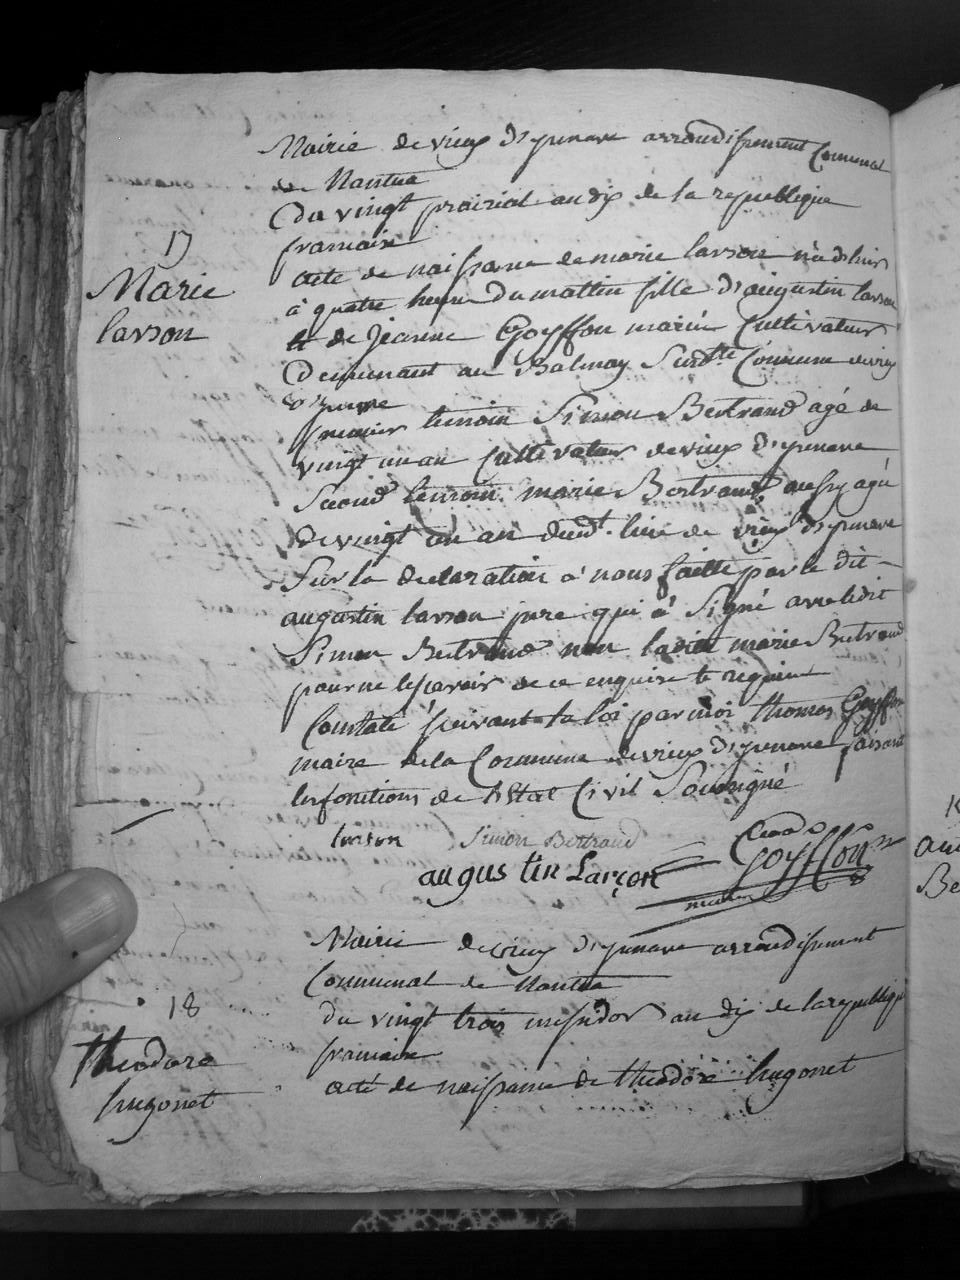 Mairie de vieux d'yzenave arrondissement Communal
de Nantua
Du vingt prairial an dix de la republique
francaise
17
Marie
larson
acte de naissance de marie larson née d'hier
à quatre heure du mattin fille d'augustin larson
et de Jeanne Goyffon mariés Cultivateur
Demeurant au Balmay Surdte Commune de vieux
d'yzenave
premier temoin Simon Bertrand agé de
vingt un an Cultivateur de vieux d'yzenave
Second temoin marie Bertrand aussy agée
de vingt un an dudt lieu de vieux d'yzenave
Sur la declaration à nous faitte par le dit
augustin larson pere qui à Signé avec ledit
Simon Bertrand non ladite marie Bertrand
pour ne le scavoir de ce enquise et requise
Constaté suivant la loi par moi thomas Goyffon
maire de la Commune de vieux d'yzenave faisant
les fonctions de l'état Civil Soussigné
larson Simon Bertrand
augustin Larçon Goyffon
maire
Mairie de vieux d'yzenave arrondissement
Communal de Nantua
18
Theodore
hugonet
du vingt trois messidor an dix de la republique
francaise
acte de naissance de theodore hugonet